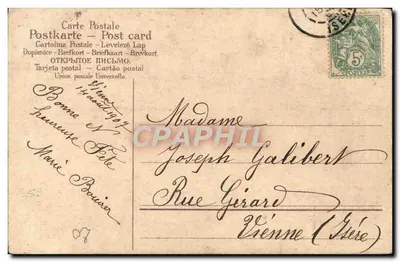 Carte Postale
Postkarte - Post card
Cartolina Postale - Levelező Lap
Dopisnice - Brefkort - Briefkaart - Brevkort
ОТКРЫТОЕ ПИСЬМО.
Tarjeta postal - Cartão postal
Union postale Universelle.
14 août 1907
Bonne &
heureuse Fête
Marie Bouvier
Madame
Joseph Galibert
Rue Girard
Vienne (Isère)
5
CPARPHIL